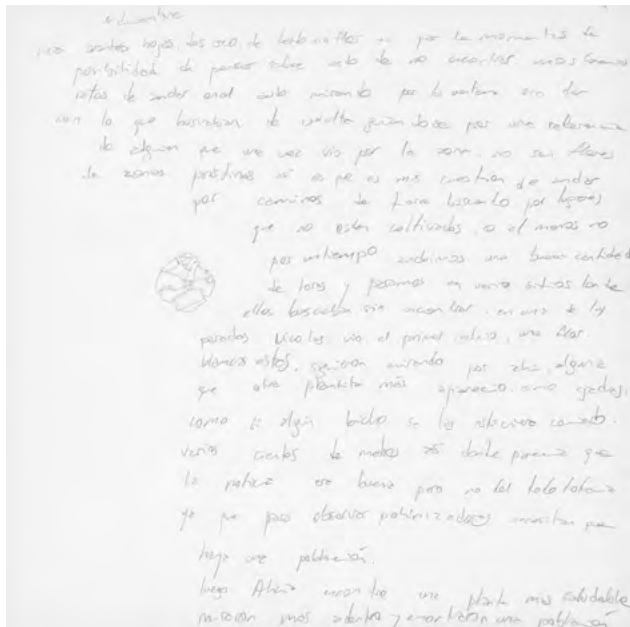 diciembre
hojas, los de por la
posibilidad de pensar sobre esto de no encontrar
de andar en el auto mirando por la ventana
con lo que buscaban de por una referencia
de alguien que una vez vio por la zona, no son flores
de zonas prístinas así es que es más cuestión de andar
por caminos de tierra buscando por lugares
que no estén cultivados, o al menos no
por un tiempo anduvimos una buena cantidad
de horas y paramos en varios sitios donde
ellos buscaban sin encontrar, en una de las
paradas Nicolas vio el primer indicio, una flor.
blanca estas, siguieron mirando por ahí, alguna
que otra plantita más apareció, como ajadas,
como si algún bicho se las estuviera comiendo.
varios cientos de metros así donde parecía que
la noticia era buena pero no del todo todavía
ya que para observar polinizadores necesitan que
haya una población.
luego Alicia encontró una planta más saludable
miraron más adentro y encontraron una población